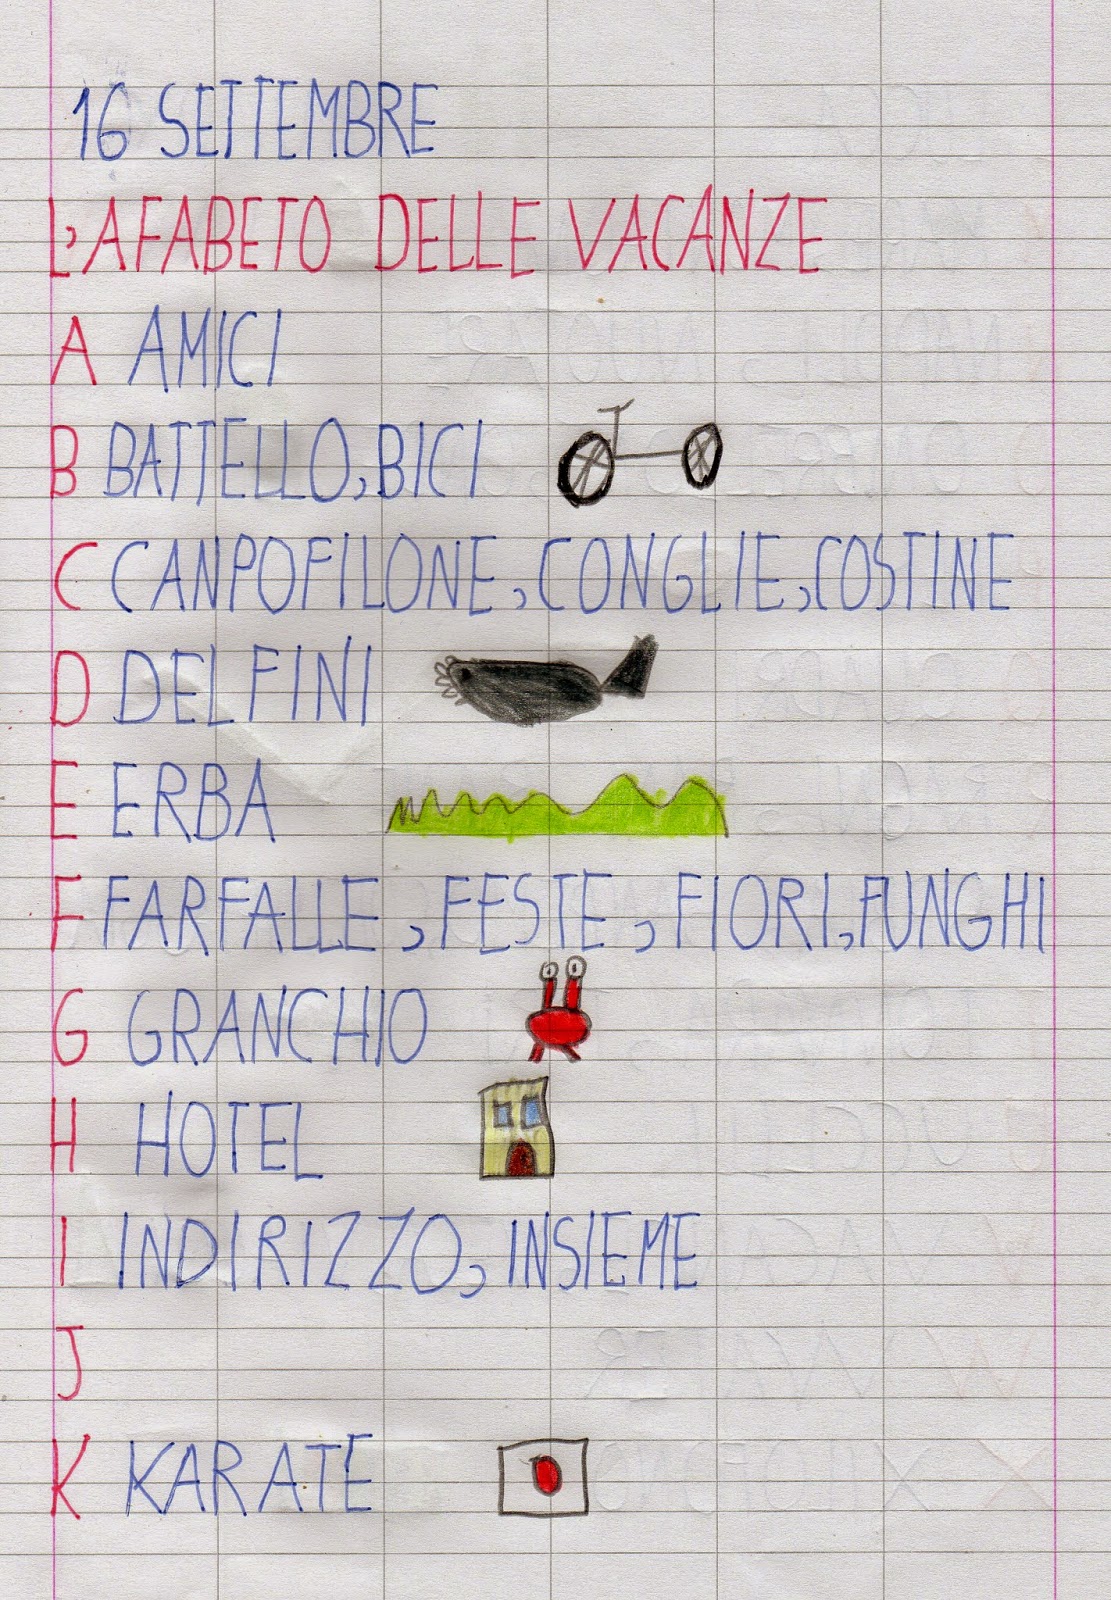 16 SETTEMBRE
L'AFABETO DELLE VACANZE
A AMICI
B BATTELLO, BICI
C CANPOFILONE, CONGLIE, COSTINE
D DELFINI
E ERBA
F FARFALLE, FESTE, FIORI, FUNGHI
G GRANCHIO
H HOTEL
I INDIRIZZO, INSIEME
J
K KARATE